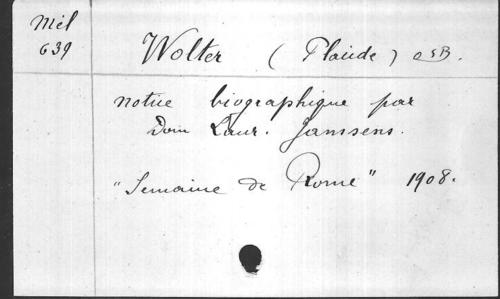 Mél
639
Wolter (Placide) OSB.
notice biographique par
Dom Laur. Janssens.
"Semaine de Rome" 1908.